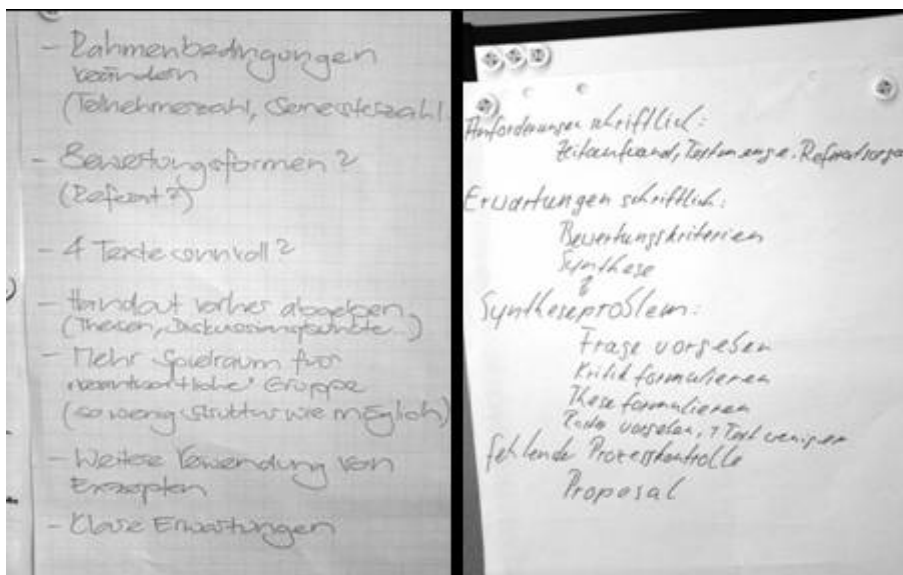 - Rahmenbedingungen
verändern
(Teilnehmerzahl, Semesterzahl
- Bewertungsformen?
(Referat?)
- 4 Texte sinnvoll?
- Handout vorher abgeben
(Thesen, Diskussionspunkte...)
- Mehr Spielraum für
verantwortliche Gruppe
(so wenig Struktur wie möglich)
- Weitere Verwendung von
Exzerpten
- Klare Erwartungen
Anforderungen schriftlich:
Zeitaufwand, Textmenge,
Erwartungen schriftlich:
Bewertungskriterien
Synthese
Syntheseproblem:
Frage vorgeben
Kritik formulieren
These formulieren
vorgeben, 1 Text weniger
fehlende Prozesskontrolle
Proposal